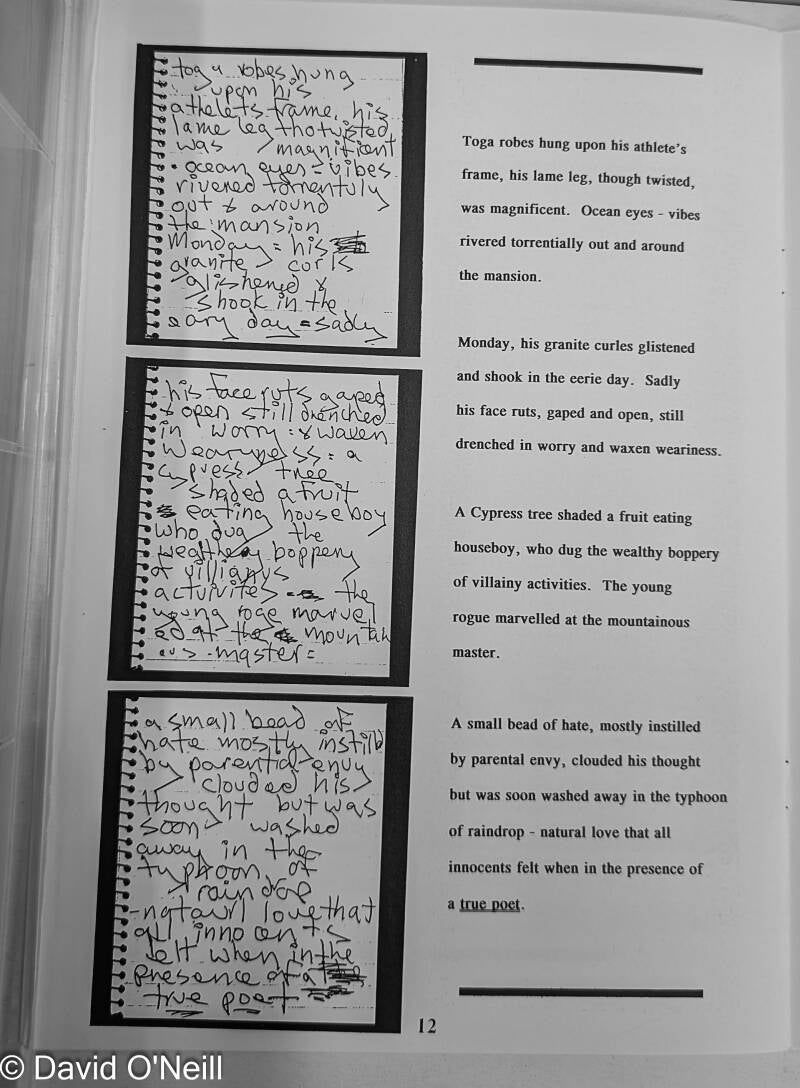 toga robes hung
upon his
athelets frame, his
lame leg tho twisted
was magnifient
ocean eyes = vibes
rivered torrentuly
out & around
the mansion
Monday = his
granite curls
glishened &
shook in the
eary day = sadly
his face ruts gaped
& open still drenched
in worry = & waxen
wearyness = a
cypress tree
shaded a fruit
eating houseboy
who dug the
wealthey boppery
of villianys
activites the
young roge marvel
ed at the mountain
ous master =
a small bead of
hate mostly instilld
by parential envy
clouded his
thought but was
soon washed
away in the
typhoon of
rain drop
-natawrl love that
all innocents
felt when in the
presence of a
true poet
Toga robes hung upon his athlete's
frame, his lame leg, though twisted,
was magnificent. Ocean eyes - vibes
rivered torrentially out and around
the mansion.
Monday, his granite curles glistened
and shook in the eerie day. Sadly
his face ruts, gaped and open, still
drenched in worry and waxen weariness.
A Cypress tree shaded a fruit eating
houseboy, who dug the wealthy boppery
of villainy activities. The young
rogue marvelled at the mountainous
master.
A small bead of hate, mostly instilled
by parental envy, clouded his thought
but was soon washed away in the typhoon
of raindrop - natural love that all
innocents felt when in the presence of
a true poet.
12
© David O'Neill